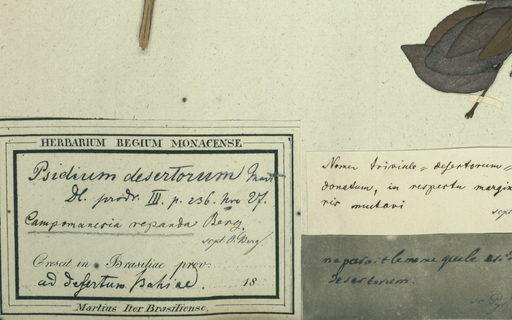 HERBARIUM REGIUM MONACENSE
Psidium desertorum Mart
Dl. prodr. III. p. 236. Nro 27.
Campomanesia repanda Berg.
scpt. O. Berg
Crescit in Brasiliae prov:
ad desertum Bahiae. 18
Martius Iter Brasiliense.
Nomen triviale desertorum
donatum, in respectu margin
ris mutavi
scpt
desertorum